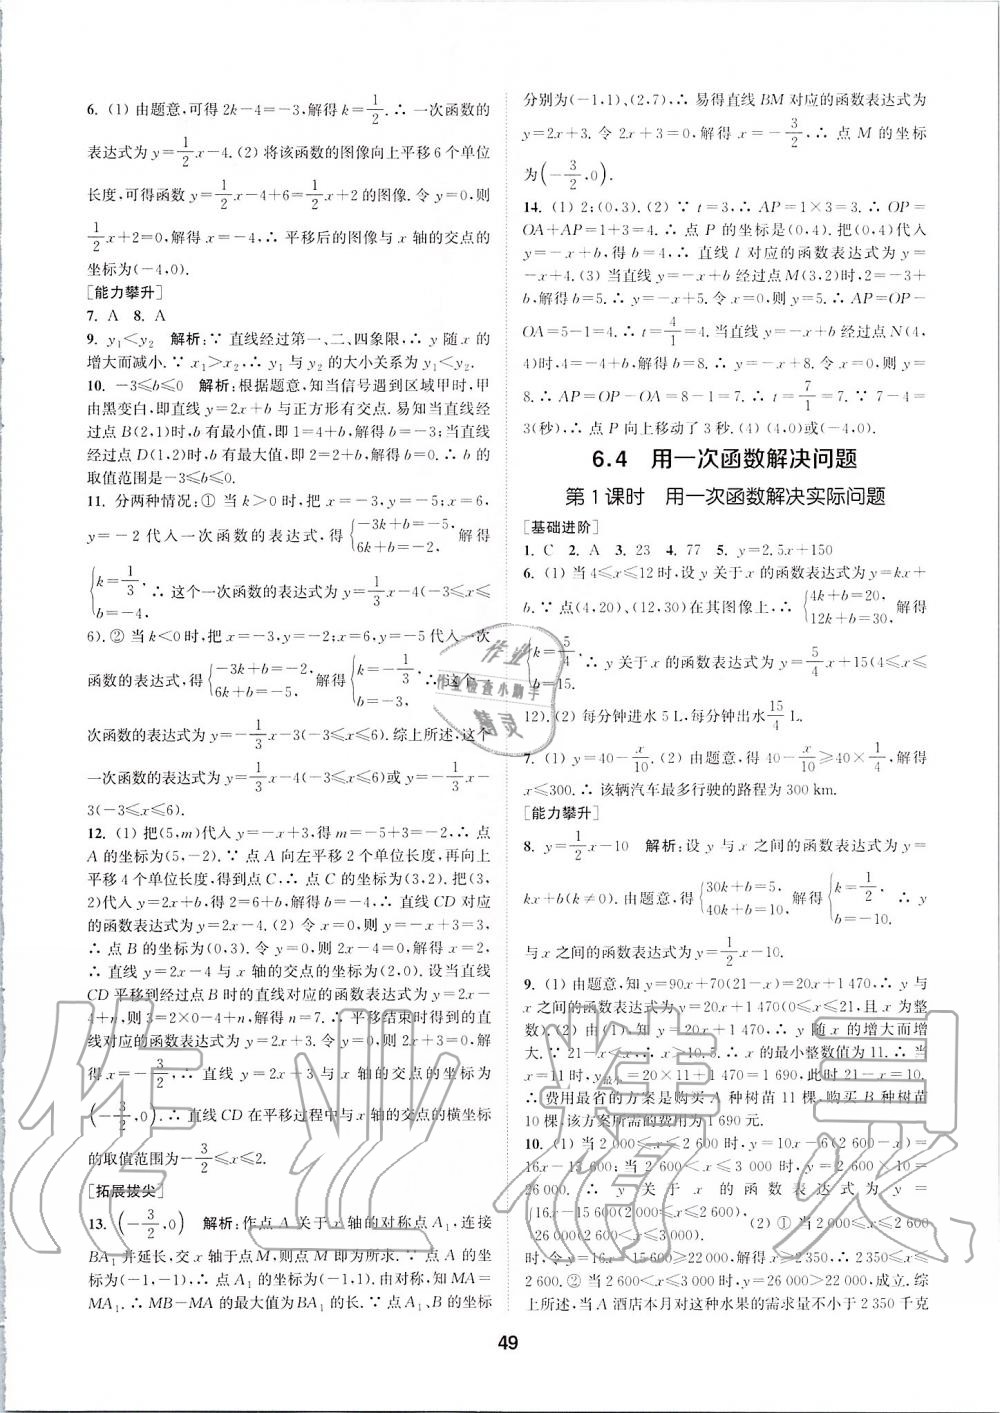 6. (1) 由题意,可得 2k-4=-3,解得 k=1/2.∴ 一次函数的
表达式为 y=1/2x-4.(2) 将该函数的图像向上平移 6 个单位
长度,可得函数 y=1/2x-4+6=1/2x+2 的图像. 令 y=0,则
1/2x+2=0,解得 x=-4,∴ 平移后的图像与 x 轴的交点的
坐标为(-4,0).
[能力攀升]
7. A 8. A
9. y₁<y₂ 解析:∵ 直线经过第一、二、四象限,∴ y 随 x 的
增大而减小.∵ x₁>x₂,∴ y₁ 与 y₂ 的大小关系为 y₁<y₂.
10. -3≤b≤0 解析:根据题意,知当信号遇到区域甲时,甲
由黑变白,即直线 y=2x+b 与正方形有交点. 易知当直线经
过点 B(2,1)时,b 有最小值,即 1=4+b,解得 b=-3;当直线经
过点 D(1,2)时,b 有最大值,即 2=2+b,解得 b=0.∴ b 的
取值范围是-3≤b≤0.
11. 分两种情况:① 当 k>0 时,把 x=-3,y=-5;x=6,
y=-2 代入一次函数的表达式,得{-3k+b=-5, 6k+b=-2,解得
{k=1/3, b=-4,∴ 这个一次函数的表达式为 y=1/3x-4(-3≤x≤
6).② 当 k<0 时,把 x=-3,y=-2;x=6,y=-5 代入一次
函数的表达式,得{-3k+b=-2, 6k+b=-5,解得{k=-1/3, b=-3,∴ 这个一
次函数的表达式为 y=-1/3x-3(-3≤x≤6). 综上所述,这个
一次函数的表达式为 y=1/3x-4(-3≤x≤6)或 y=-1/3x-
3(-3≤x≤6).
12. (1) 把(5,m)代入 y=-x+3,得 m=-5+3=-2,∴ 点
A 的坐标为(5,-2).∵ 点 A 向左平移 2 个单位长度,再向上
平移 4 个单位长度,得到点 C,∴ 点 C 的坐标为(3,2). 把(3,
2)代入 y=2x+b,得 2=6+b,解得 b=-4,∴ 直线 CD 对应
的函数表达式为 y=2x-4. (2) 令 x=0,则 y=-x+3=3,
∴ 点 B 的坐标为(0,3). 令 y=0,则 2x-4=0,解得 x=2,
∴ 直线 y=2x-4 与 x 轴的交点的坐标为(2,0). 设当直线
CD 平移到经过点 B 时的直线对应的函数表达式为 y=2x-
4+n,则 3=2×0-4+n,解得 n=7.∴ 平移结束时得到的直
线对应的函数表达式为 y=2x+3. 令 y=0,则 2x+3=0,解
得 x=-3/2,∴ 直线 y=2x+3 与 x 轴的交点的坐标为
(-3/2,0).∴ 直线 CD 在平移过程中与 x 轴的交点的横坐标
的取值范围为-3/2≤x≤2.
[拓展拔尖]
13. (-3/2,0) 解析:作点 A 关于 x 轴的对称点 A₁,连接
BA₁ 并延长,交 x 轴于点 M,则点 M 即为所求.∵ 点 A 的坐标
为(-1,-1),∴ 点 A₁ 的坐标为(-1,1). 由对称,知 MA=
MA₁.∴ MB-MA 的最大值为BA₁ 的长.∵ 点 A₁、B 的坐标
分别为(-1,1)、(2,7),∴ 易得直线 BM 对应的函数表达式为
y=2x+3. 令 2x+3=0,解得 x=-3/2,∴ 点 M 的坐标
为(-3/2,0).
14. (1) 2;(0,3). (2) ∵ t=3,∴ AP=1×3=3.∴ OP=
OA+AP=1+3=4.∴ 点 P 的坐标是(0,4). 把(0,4)代入
y=-x+b,得 b=4,∴ 直线 l 对应的函数表达式为 y=
-x+4. (3) 当直线 y=-x+b 经过点 M(3,2)时,2=-3+
b,解得 b=5.∴ y=-x+5. 令 x=0,则 y=5.∴ AP=OP-
OA=5-1=4.∴ t=4/1=4. 当直线 y=-x+b 经过点 N(4,
4)时,4=-4+b,解得 b=8.∴ y=-x+8. 令 x=0,则 y=
8.∴ AP=OP-OA=8-1=7.∴ t=7/1=7.∵ 7-4=
3(秒),∴ 点 P 向上移动了 3 秒. (4) (4,0)或(-4,0).
6.4 用一次函数解决问题
第 1 课时 用一次函数解决实际问题
[基础进阶]
1. C 2. A 3. 23 4. 77 5. y=2.5x+150
6. (1) 当 4≤x≤12 时,设 y 关于 x 的函数表达式为 y=kx+
b.∵ 点(4,20)、(12,30)在其图像上,∴ {4k+b=20, 12k+b=30,解得
{k=5/4, b=15.∴ y 关于 x 的函数表达式为 y=5/4x+15(4≤x≤
12). (2) 每分钟进水 5 L,每分钟出水15/4 L.
7. (1) y=40-x/10. (2) 由题意,得 40-x/10≥40×1/4,解得
x≤300.∴ 该辆汽车最多行驶的路程为 300 km.
[能力攀升]
8. y=1/2x-10 解析:设 y 与 x 之间的函数表达式为 y=
kx+b(k≠0). 由题意,得{30k+b=5, 40k+b=10,解得{k=1/2, b=-10.∴ y
与 x 之间的函数表达式为 y=1/2x-10.
9. (1) 由题意,知 y=90x+70(21-x)=20x+1 470,∴ y 与
x 之间的函数表达式为 y=20x+1 470(0≤x≤21,且 x 为整
数). (2) 由(1),知 y=20x+1 470,∴ y 随 x 的增大而增
大.∵ 21-x<x,∴ x>10.5.∴ x 的最小整数值为 11.∴ 当
x=11 时,y最小=20×11+1 470=1 690,此时 21-x=10.
∴ 费用最省的方案是购买 A 种树苗 11 棵,购买 B 种树苗
10 棵,该方案所需的费用为 1 690 元.
10. (1) 当 2 000≤x≤2 600 时,y=10x-6(2 600-x)=
16x-15 600;当 2 600<x≤3 000 时,y=2 600×10=
26 000.∴ y 关于 x 的函数表达式为 y=
{16x-15 600(2 000≤x≤2 600), 26 000(2 600<x≤3 000). (2) ① 当 2 000≤x≤2 600
时,令 y=16x-15 600≥22 000,解得 x≥2350,∴ 2 350≤x≤
2 600. ② 当 2 600<x≤3 000 时,y=26 000>22 000,成立. 综
上所述,当 A 酒店本月对这种水果的需求量不小于 2 350 千克
49
作业精灵
作业检查小助手